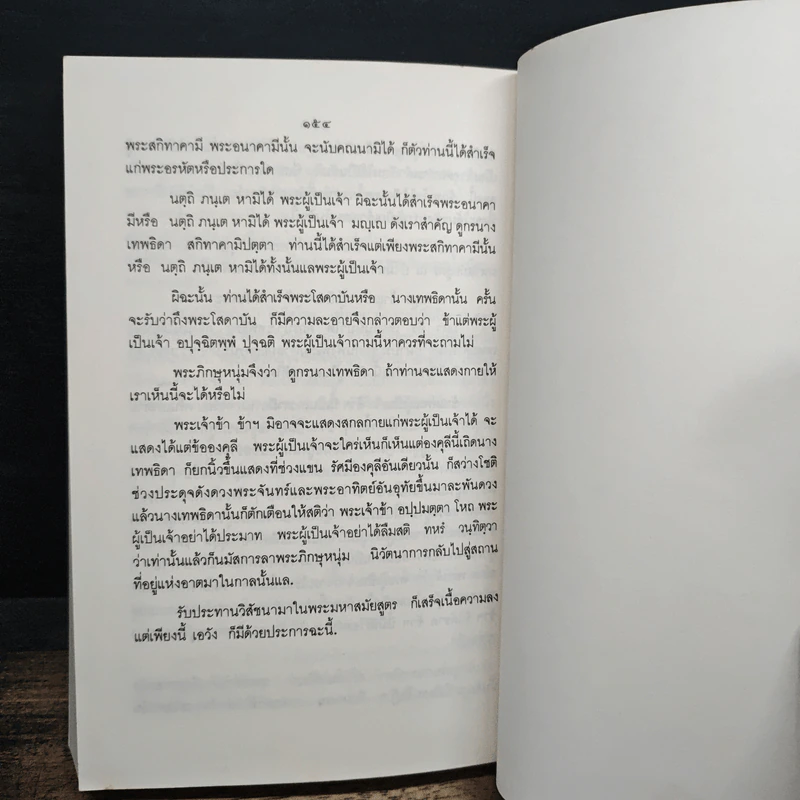 ๑๕๔
พระสกิทาคามี พระอนาคามีนั้น จะนับคณนามิได้ ก็ตัวท่านนี้ได้สำเร็จ
แก่พระอรหัตหรือประการใด
นตฺถิ ภนฺเต หามิได้ พระผู้เป็นเจ้า ผิฉะนั้นได้สำเร็จพระอนาคา
มีหรือ นตฺถิ ภนฺเต หามิได้ พระผู้เป็นเจ้า มญฺเญ ดังเราสำคัญ ดูกรนาง
เทพธิดา สกิทาคามิปตฺตา ท่านนี้ได้สำเร็จแต่เพียงพระสกิทาคามีนั้น
หรือ นตฺถิ ภนฺเต หามิได้ทั้งนั้นแลพระผู้เป็นเจ้า
ผิฉะนั้น ท่านได้สำเร็จพระโสดาบันหรือ นางเทพธิดานั้น ครั้น
จะรับว่าถึงพระโสดาบัน ก็มีความละอายจึงกล่าวตอบว่า ข้าแต่พระผู้
เป็นเจ้า อปุจฺฉิตพฺพํ ปุจฺฉติ พระผู้เป็นเจ้าถามนี้หาควรที่จะถามไม่
พระภิกษุหนุ่มจึงว่า ดูกรนางเทพธิดา ถ้าท่านจะแสดงกายให้
เราเห็นนี้จะได้หรือไม่
พระเจ้าข้า ข้าฯ มิอาจจะแสดงสกลกายแก่พระผู้เป็นเจ้าได้ จะ
แสดงได้แต่ข้อองคุลี พระผู้เป็นเจ้าจะใคร่เห็นก็เห็นแต่องคุลีนี้เถิดนาง
เทพธิดา ก็ยกนิ้วขึ้นแสดงที่ช่วงแขน รัศมีองคุลีอันเดียวนั้น ก็สว่างโชติ
ช่วงประดุจดังดวงพระจันทร์และพระอาทิตย์อันอุทัยขึ้นมาละพันดวง
แล้วนางเทพธิดานั้นก็ตักเตือนให้สติว่า พระเจ้าข้า อปฺปมตฺตา โหถ พระ
ผู้เป็นเจ้าอย่าได้ประมาท พระผู้เป็นเจ้าอย่าได้ลืมสติ ทหรํ วนฺทิตฺวา
ว่าเท่านั้นแล้วก็นมัสการลาพระภิกษุหนุ่ม นิวัตนาการกลับไปสู่สถาน
ที่อยู่แห่งอาตมาในกาลนั้นแล.
รับประทานวิสัชนามาในพระมหาสมัยสูตร ก็เสร็จเนื้อความลง
แต่เพียงนี้ เอวัง ก็มีด้วยประการฉะนี้.